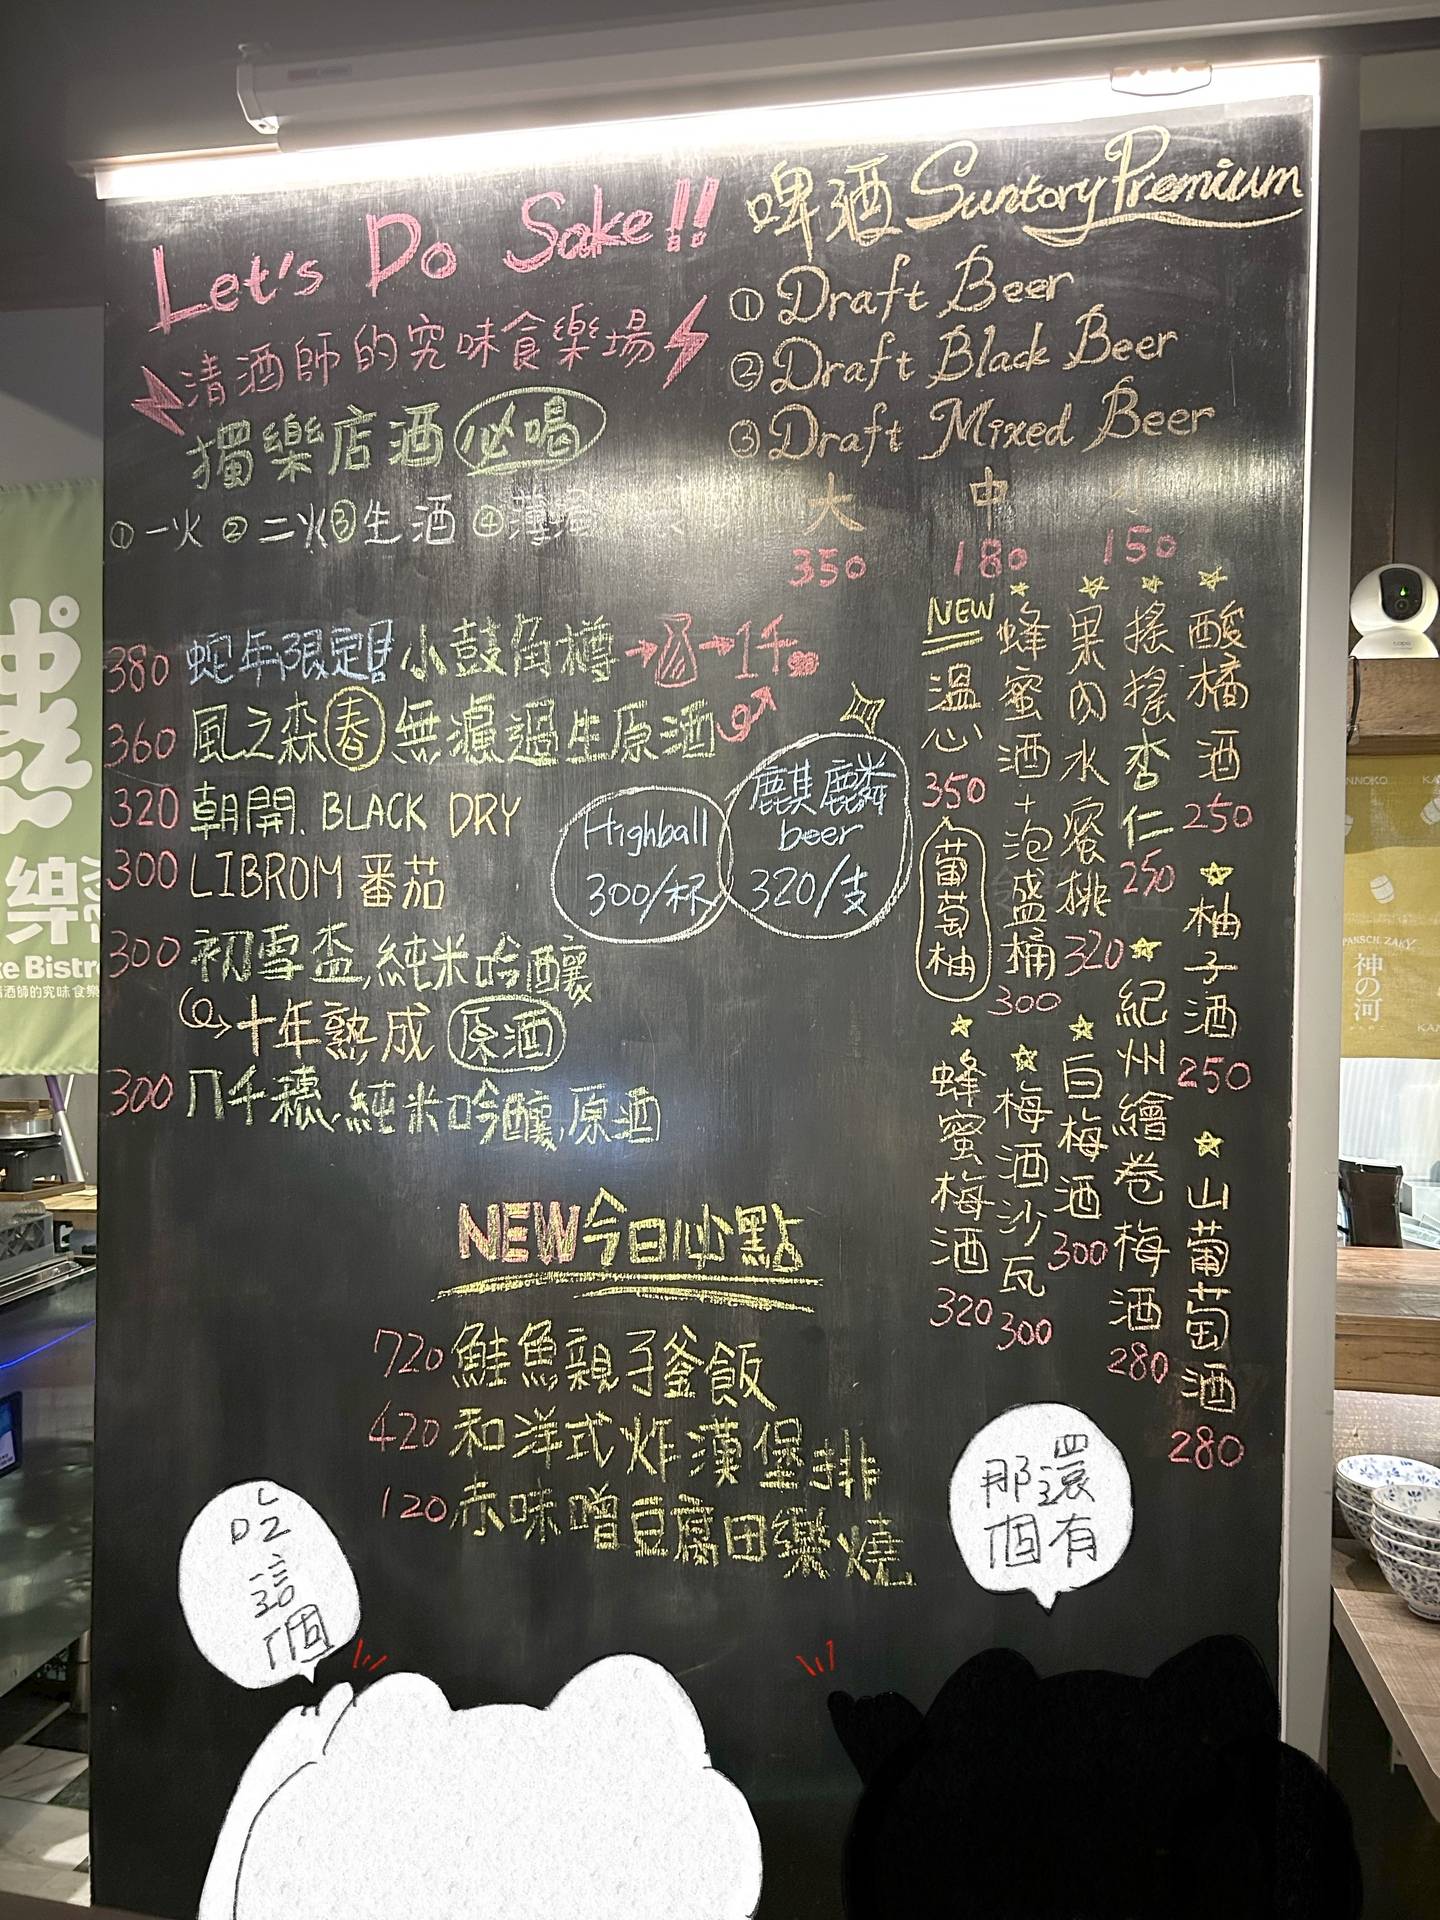 Let's Do Sake!!
清酒師的究味食樂場
獨樂店酒 必喝
① 一火 ② 二火 ③ 生酒 ④
380 蛇年限定!! 小鼓角樽 → → 1千
360 風之森 春 無濾過生原酒
320 朝開. BLACK DRY
300 LIBROM 番茄
300 初雪盃.純米吟釀
十年熟成 原酒
300 八千穗.純米吟釀.原酒
Highball
300/杯
麒麟
beer
320/支
啤酒 Suntory Premium
① Draft Beer
② Draft Black Beer
③ Draft Mixed Beer
大 中 小
350 180 150
酸橘酒 250
柚子酒 250
山葡萄酒 280
搖搖杏仁 250
紀州繪卷梅酒 280
果肉水蜜排 320
白梅酒 300
蜂蜜酒+泡盛桶 300
梅酒沙瓦 300
NEW
溫心 350
葡萄柚
蜂蜜梅酒 320
NEW 今日必點
720 鮭魚親子釜飯
420 和洋式炸漢堡排
120 赤味噌豆腐田樂燒
吃
這
個
還有
那個
樂
ke Bistr
清酒師的究味食樂
神の河